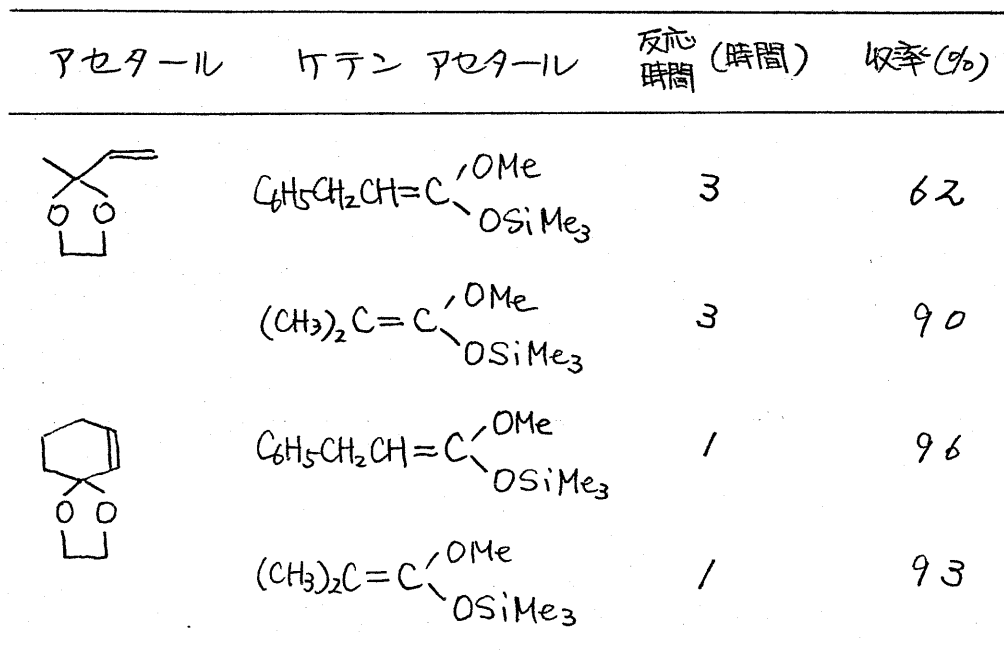 アセタール ケテン アセタール 反応時間 (時間) 収率(%)
O O
C6H5CH2CH=C OMe OSiMe3 3 62
(CH3)2C=C OMe OSiMe3 3 90
O O
C6H5CH2CH=C OMe OSiMe3 1 96
(CH3)2C=C OMe OSiMe3 1 93